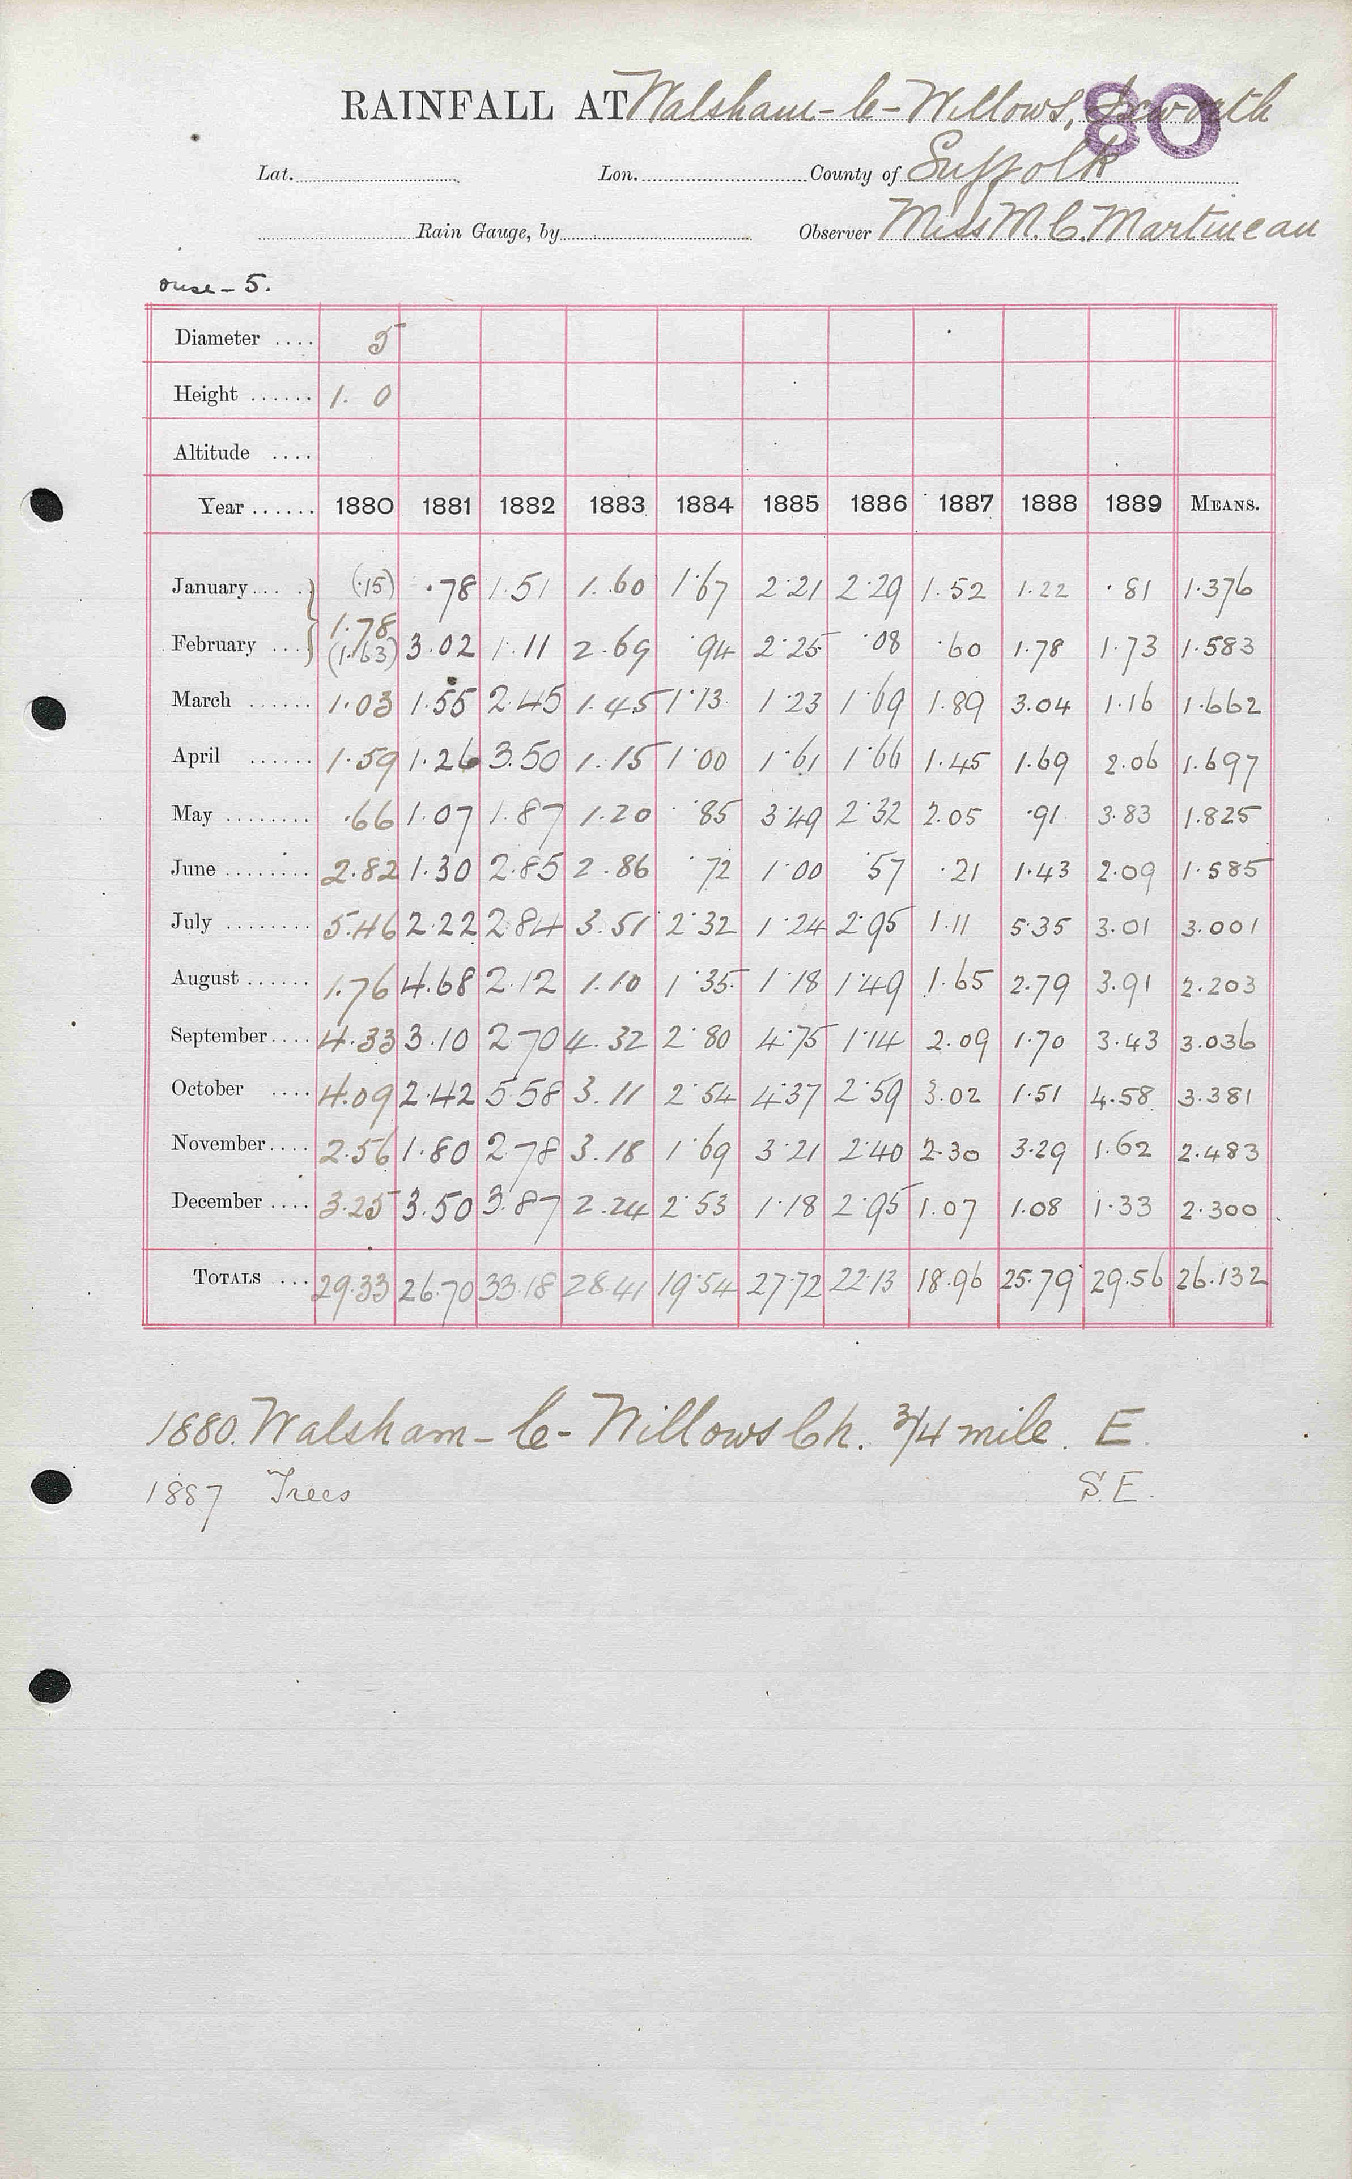 80
RAINFALL AT Walsham-le-Willows, Ixworth
Lat. Lon. County of Suffolk
Rain Gauge, by Observer Miss M. C. Martineau
Ouse - 5.
Diameter .... 5
Height ...... 1. 0
Altitude ....
Year ...... 1880 1881 1882 1883 1884 1885 1886 1887 1888 1889 MEANS.
January.... (.15) .78 1.51 1.60 1.67 2.21 2.29 1.52 1.22 .81 1.376
1.78
February ... (1.63) 3.02 1.11 2.69 .94 2.25 .08 .60 1.78 1.73 1.583
March ...... 1.03 1.55 2.45 1.45 1.13 1.23 1.69 1.89 3.04 1.16 1.662
April ...... 1.59 1.26 3.50 1.15 1.00 1.61 1.66 1.45 1.69 2.06 1.697
May ........ .66 1.07 1.87 1.20 .85 3.49 2.32 2.05 .91 3.83 1.825
June ........ 2.82 1.30 2.85 2.86 .72 1.00 .57 .21 1.43 2.09 1.585
July ........ 5.46 2.22 2.84 3.51 2.32 1.24 2.95 1.11 5.35 3.01 3.001
August ...... 1.76 4.68 2.12 1.10 1.35 1.18 1.49 1.65 2.79 3.91 2.203
September.... 4.33 3.10 2.70 4.32 2.80 4.75 1.14 2.09 1.70 3.43 3.036
October .... 4.09 2.42 5.58 3.11 2.54 4.37 2.59 3.02 1.51 4.58 3.381
November.... 2.56 1.80 2.78 3.18 1.69 3.21 2.40 2.30 3.29 1.62 2.483
December .... 3.25 3.50 3.87 2.24 2.53 1.18 2.95 1.07 1.08 1.33 2.300
TOTALS ... 29.33 26.70 33.18 28.41 19.54 27.72 22.13 18.96 25.79 29.56 26.132
1880. Walsham-le-Willows Ch. 3/4 mile. E.
1887 Trees S.E.